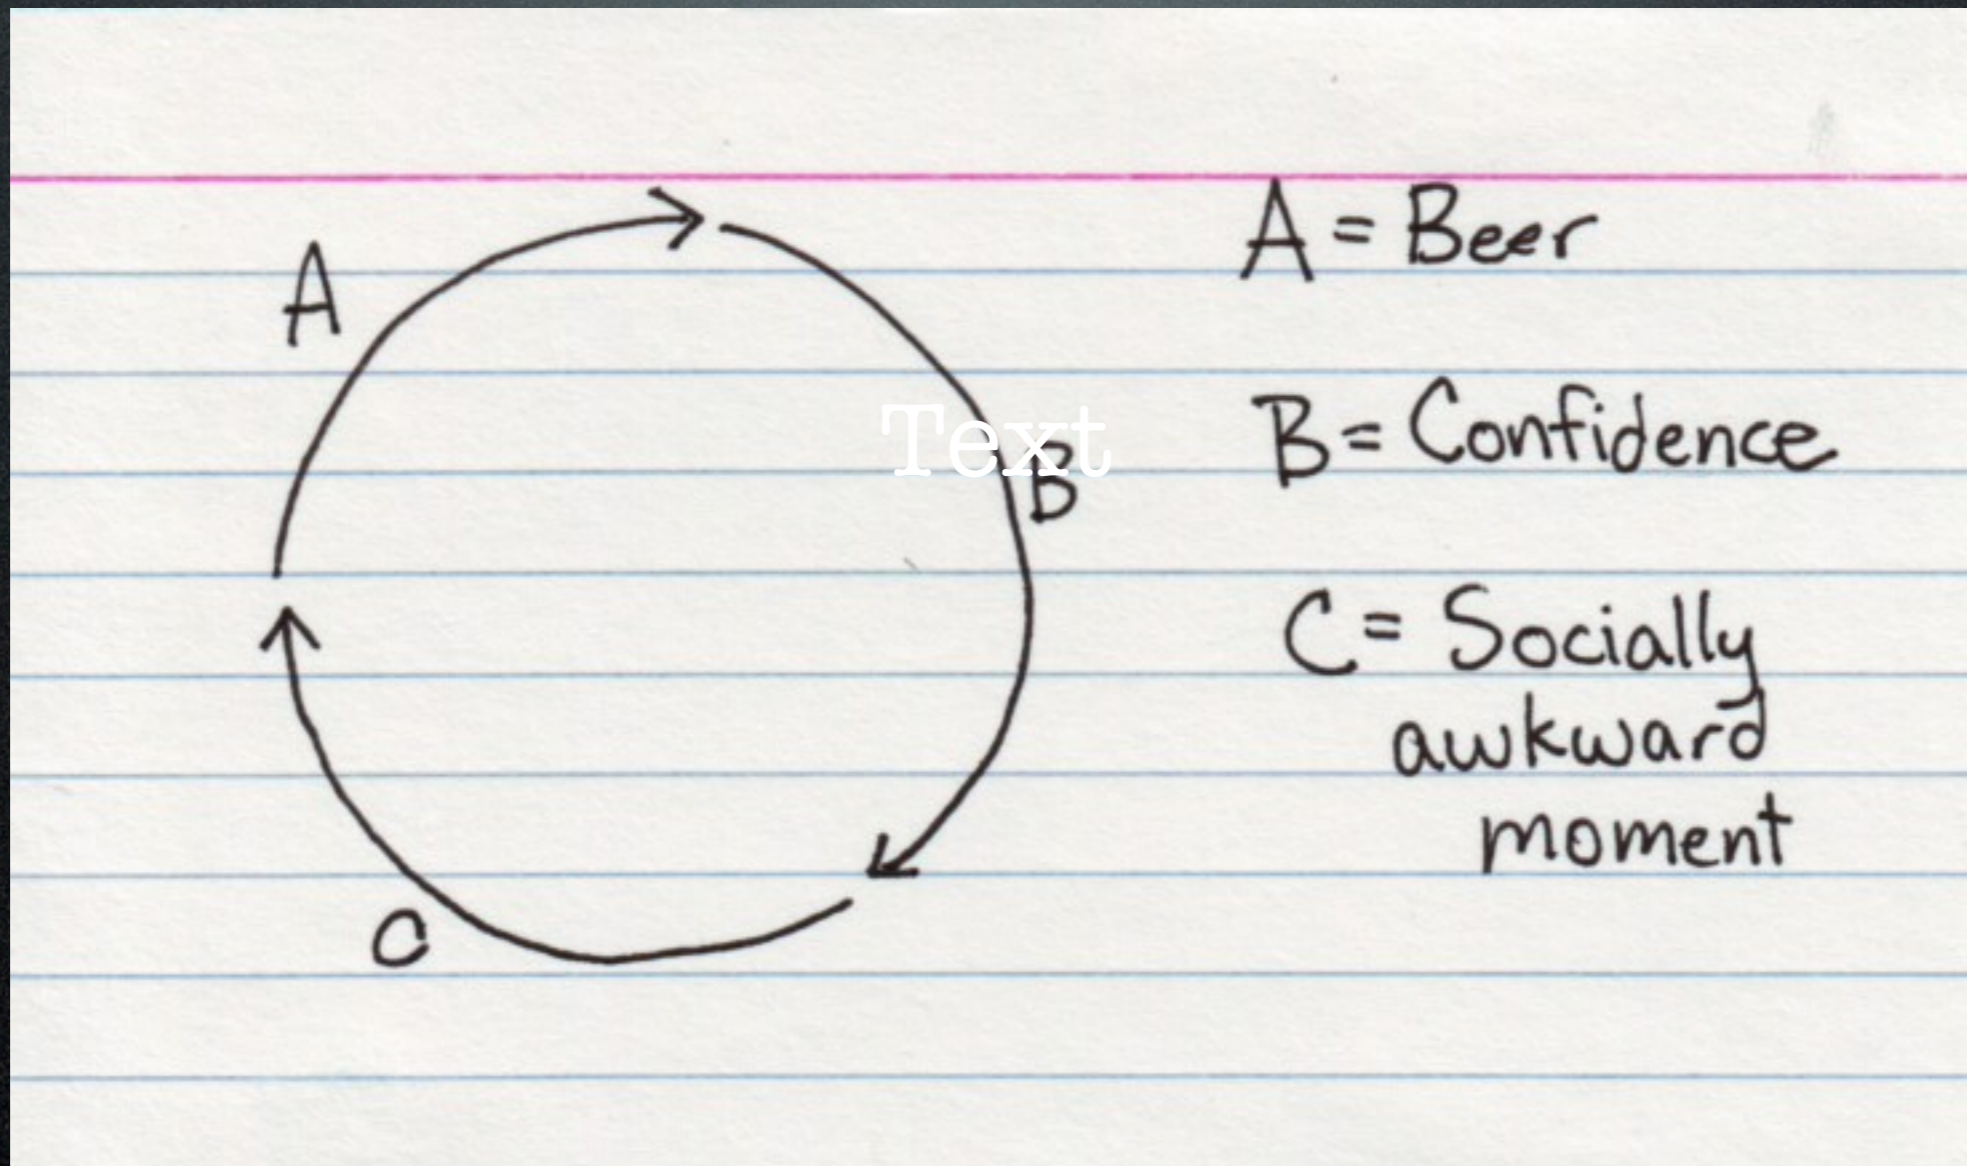 A
Text
B
C
A = Beer
B = Confidence
C = Socially
awkward
moment